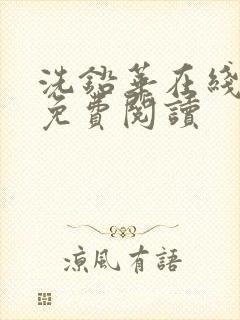 洗鉛華在綫
免費閱讀
涼風有語